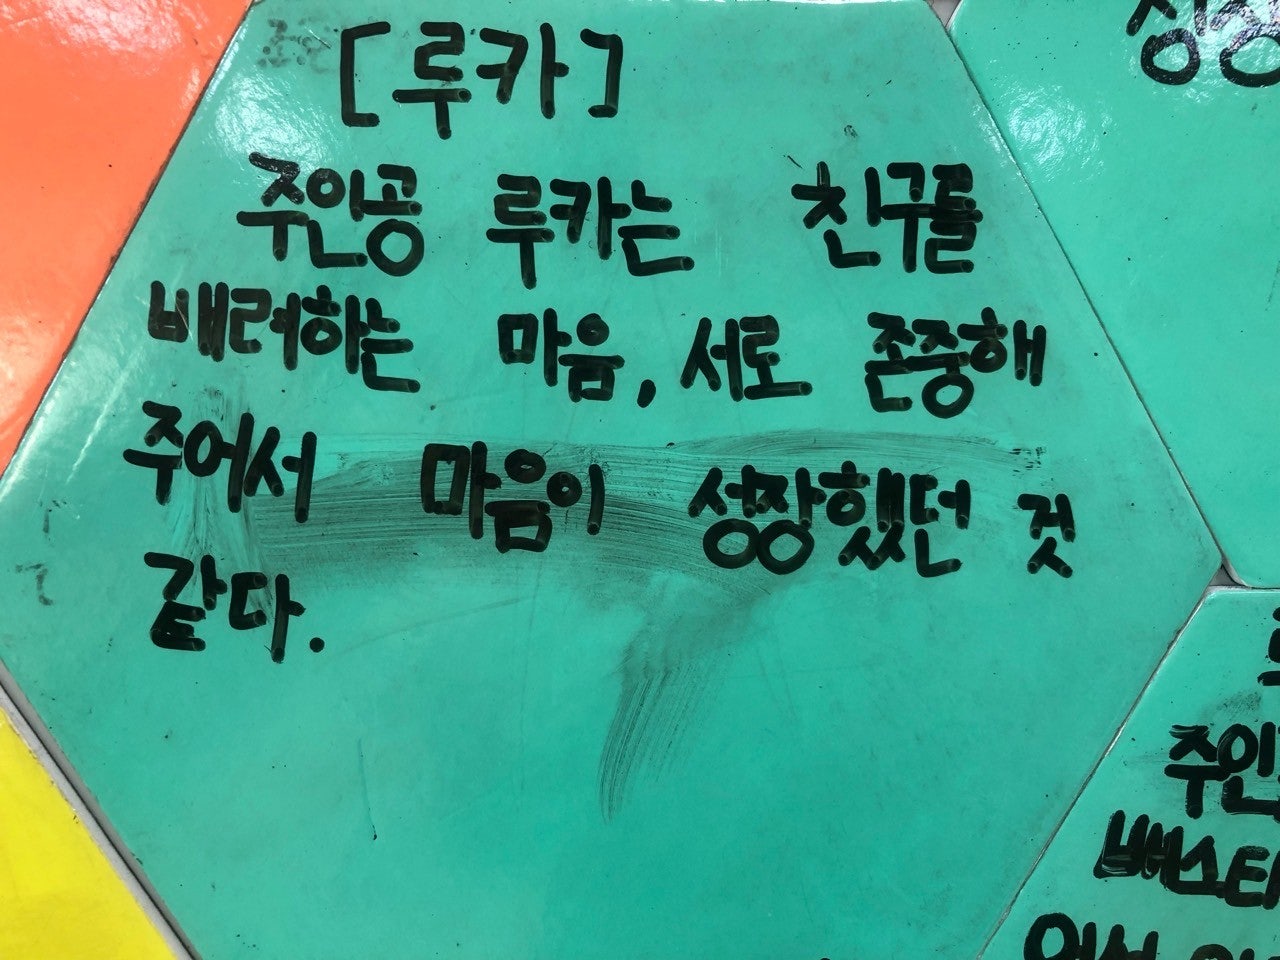 [루카]
주인공 루카는 친구를
배려하는 마음, 서로 존중해
주어서 마음이 성장했던 것
같다.
주인
빼스타